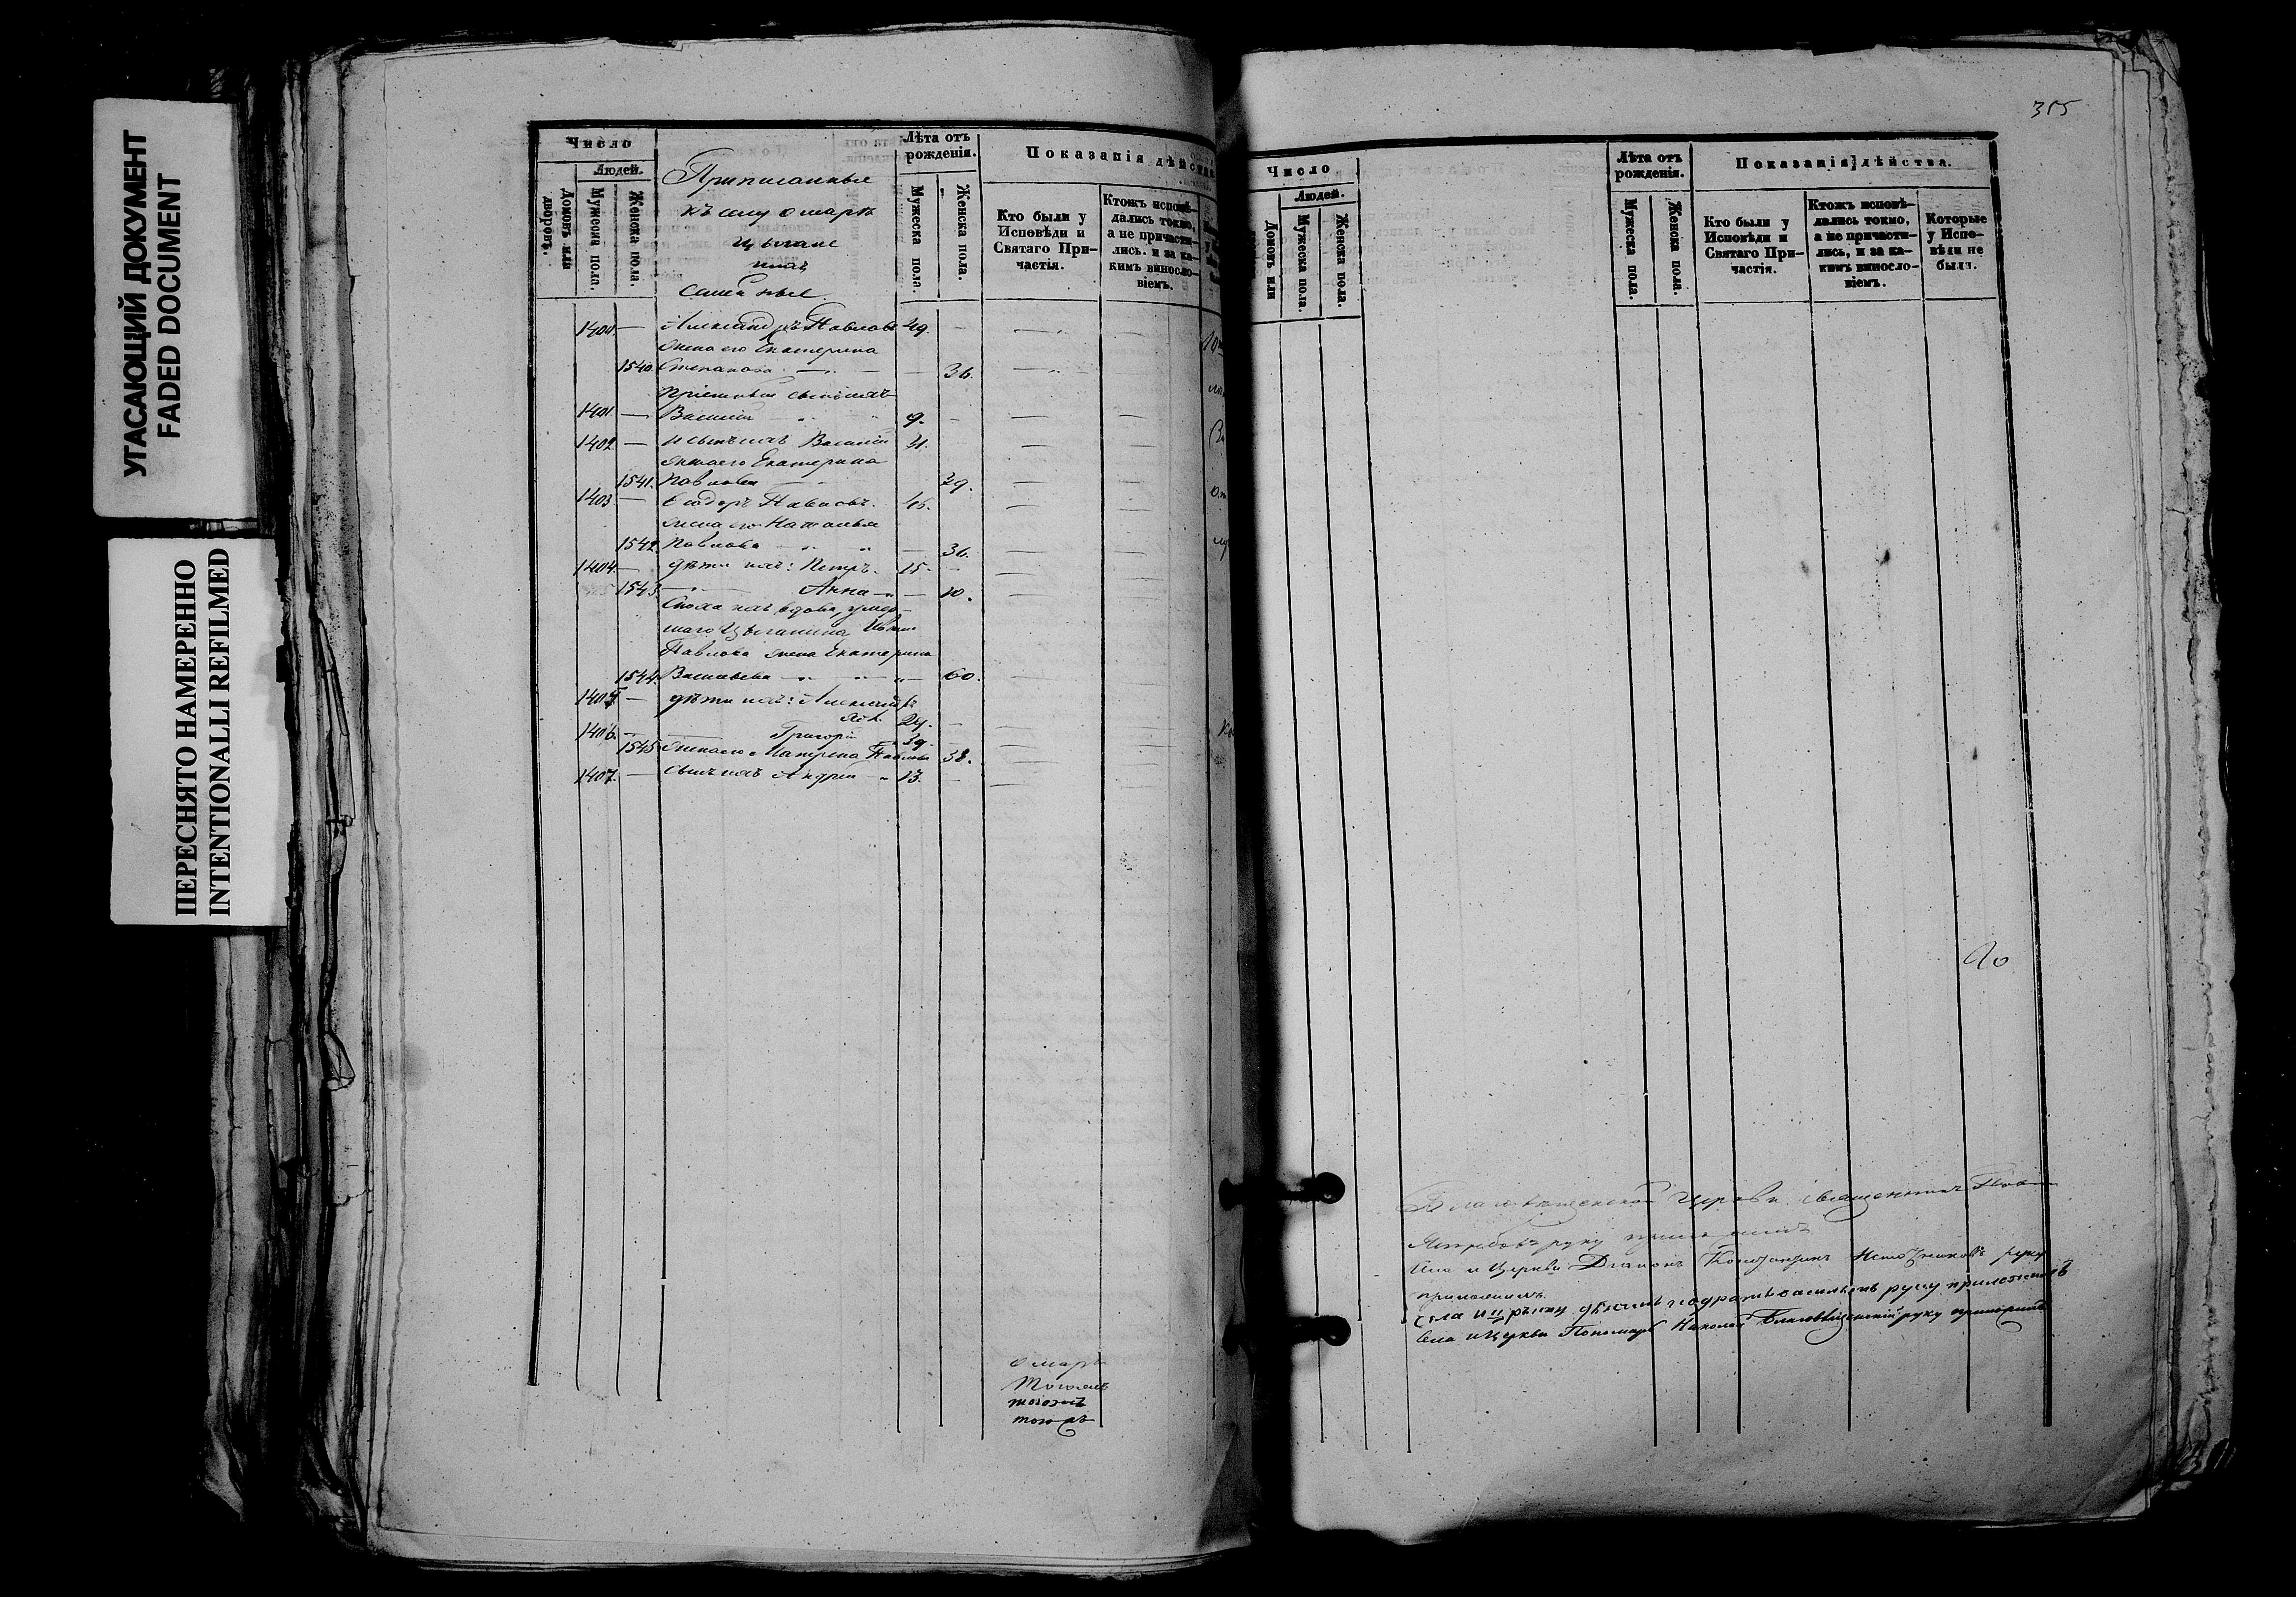 УГАСАЮЩИЙ ДОКУМЕНТ
FADED DOCUMENT
ПЕРЕСНЯТО НАМЕРЕННО
INTENTIONALLI REFILMED
Число
Людей.
Домовъ или дворовъ.
Мужеска пола.
Женска пола.
Приписанныя
къ селу Омаръ
цыгане
ихъ
семейные
Лѣта отъ рожденія.
Мужеска пола.
Женска пола.
Показанія дѣйства
Кто были у Исповѣди и Святаго Причастія.
Ктожъ исповѣдались токмо, а не причастились. и за какимъ винословіемъ.
1400 — Александръ Павловъ 49. —
жена его Екатерина
1540. Степанова — 36.
пріемный сынъ ихъ
1401. — Василій 9. —
1402 — и сынъ ихъ Василій 31.
жена его Екатерина
1541. Павлова 29.
1403 — Ѳедоръ Павловъ. 46.
жена его Наталья
1542. Павлова — 36.
1404 — дѣти ихъ: Петръ. 15. —
1543. — Анна — 10.
вдова, умер-
шаго Цыганина
Павлова жена Екатерина
1544. Васильева — 60.
1405 — дѣти ихъ: Александръ
24. —
1406. — Григорій 39. —
1545. жена его Матрена Павлова 38.
1407. — сынъ ихъ Андрей 13. —
Омаръ
Тогожъ
тогожъ
тогожъ
355
Число
Людей.
Домовъ или
Мужеска пола.
Женска пола.
Лѣта отъ рожденія.
Мужеска пола.
Женска пола.
Показанія дѣйства.
Кто были у Исповѣди и Святаго Причастія.
Ктожъ исповѣдались токмо, а не причастились, и за какимъ винословіемъ.
Которые у Исповѣди не были.
Благовѣщенской Церкви священникъ
руку приложилъ
села и Церкви Діаконъ Константинъ руку
приложилъ
села и Церкви руку приложилъ
села и Церкви Пономарь Николай Благовѣщенскій руку приложилъ